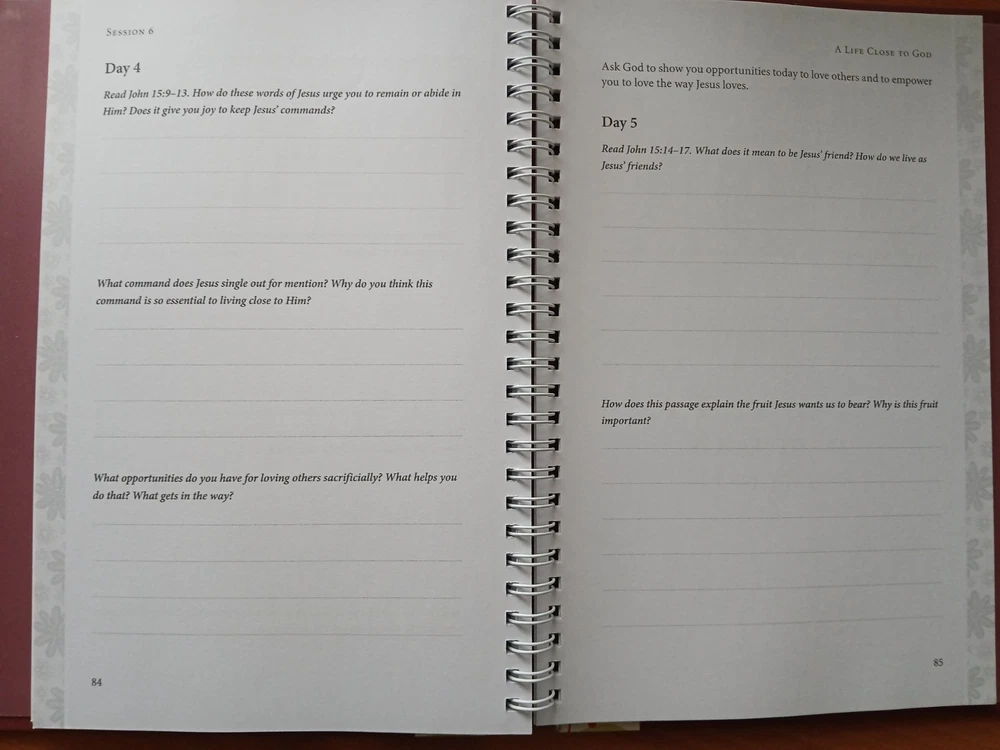 Session 6
Day 4
Read John 15:9–13. How do these words of Jesus urge you to remain or abide in
Him? Does it give you joy to keep Jesus' commands?
What command does Jesus single out for mention? Why do you think this
command is so essential to living close to Him?
What opportunities do you have for loving others sacrificially? What helps you
do that? What gets in the way?
84
A Life Close to God
Ask God to show you opportunities today to love others and to empower
you to love the way Jesus loves.
Day 5
Read John 15:14–17. What does it mean to be Jesus' friend? How do we live as
Jesus' friends?
How does this passage explain the fruit Jesus wants us to bear? Why is this fruit
important?
85